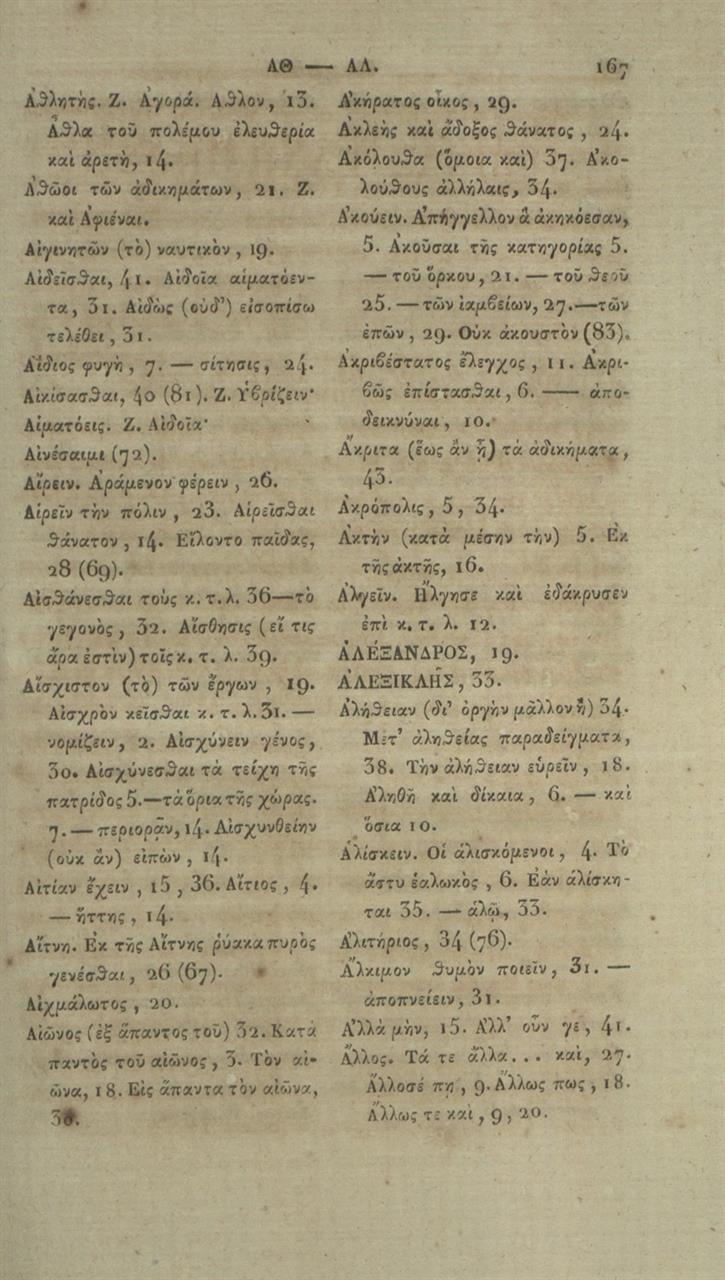 ΑΘ — ΑΛ.
167
Ἀθλητής. Ζ. Ἀγορά. Ἆθλον, 13.
Ἆθλα τοῦ πολέμου ἐλευθερία
καὶ ἀρετὴ, 14.
Ἀθῶοι τῶν ἀδικημάτων, 21. Ζ.
καὶ Ἀφιέναι.
Αἰγινητῶν (τὸ) ναυτικὸν, 19.
Αἰδεῖσθαι, 41. Αἰδοῖα αἱματόεν-
τα, 31. Αἰδὼς (οὐδ’) εἰσοπίσω
τελέθει, 31.
Ἀΐδιος φυγὴ, 7. — σίτησις, 24.
Αἰκίσασθαι, 40 (81). Ζ. Ὑβρίζειν·
Αἱματόεις. Ζ. Αἰδοῖα·
Αἰνέσαιμι (72).
Αἴρειν. Ἀράμενον φέρειν, 26.
Αἱρεῖν τὴν πόλιν, 23. Αἱρεῖσθαι
θάνατον, 14. Εἵλοντο παῖδας,
28 (69).
Αἰσθάνεσθαι τοὺς κ. τ. λ. 36—τὸ
γεγονὸς, 32. Αἴσθησις (εἴ τις
ἄρα ἐστὶν) τοῖς κ. τ. λ. 39.
Αἴσχιστον (τὸ) τῶν ἔργων, 19.
Αἰσχρὸν κεῖσθαι κ. τ. λ. 31. —
νομίζειν, 2. Αἰσχύνειν γένος,
30. Αἰσχύνεσθαι τὰ τείχη τῆς
πατρίδος 5.—τὰ ὅρια τῆς χώρας.
7. — περιορᾷν, 14. Αἰσχυνθείην
(οὐκ ἂν) εἰπὼν, 14.
Αἰτίαν ἔχειν, 15, 36. Αἴτιος, 4.
— ἥττης, 14.
Αἴτνη. Ἐκ τῆς Αἴτνης ῥύακα πυρὸς
γενέσθαι, 26 (67).
Αἰχμάλωτος, 20.
Αἰῶνος (ἐξ ἅπαντος τοῦ) 32. Κατὰ
παντὸς τοῦ αἰῶνος, 3. Τὸν αἰ-
ῶνα, 18. Εἰς ἅπαντα τὸν αἰῶνα,
Ἀκήρατος οἶκος, 29.
Ἀκλεὴς καὶ ἄδοξος θάνατος, 24.
Ἀκόλουθα (ὅμοια καὶ) 37. Ἀκο-
λούθους ἀλλήλαις, 34.
Ἀκούειν. Ἀπήγγελλον ἃ ἀκηκόεσαν,
5. Ἀκοῦσαι τῆς κατηγορίας 5.
— τοῦ ὅρκου, 21. — τοῦ θεοῦ
25. — τῶν ἰαμβείων, 27.—τῶν
ἐπῶν, 29. Οὐκ ἀκουστὸν (83).
Ἀκριβέστατος ἔλεγχος, 11. Ἀκρι-
βῶς ἐπίστασθαι, 6. — ἀπο-
δεικνύναι, 10.
Ἄκριτα (ἕως ἂν ᾖ) τὰ ἀδικήματα,
43.
Ἀκρόπολις, 5, 34.
Ἀκτὴν (κατὰ μέσην τὴν) 5. Ἐκ
τῆς ἀκτῆς, 16.
Ἀλγεῖν. Ἤλγησε καὶ ἐδάκρυσεν
ἐπὶ κ. τ. λ. 12.
ἈΛΕΞΑΝΔΡΟΣ, 19.
ἈΛΕΞΙΚΛῆΣ, 33.
Ἀλήθειαν (δι’ ὀργὴν μᾶλλον ἢ) 34.
Μετ’ ἀληθείας παραδείγματα,
38. Τὴν ἀλήθειαν εὑρεῖν, 18.
Ἀληθῆ καὶ δίκαια, 6. — καὶ
ὅσια 10.
Ἁλίσκειν. Οἱ ἁλισκόμενοι, 4. Τὸ
ἄστυ ἑαλωκὸς, 6. Ἐὰν ἁλίσκη-
ται 35. — ἁλῷ, 33.
Ἀλιτήριος, 34 (76).
Ἄλκιμον θυμὸν ποιεῖν, 31. —
ἀποπνείειν, 31.
Ἀλλὰ μὴν, 15. Ἀλλ’ οὖν γε, 41.
Ἄλλος. Τά τε ἄλλα... καὶ, 27.
Ἄλλοσέ πη, 9. Ἄλλως πως, 18.
Ἄλλως τε καὶ, 9, 20.